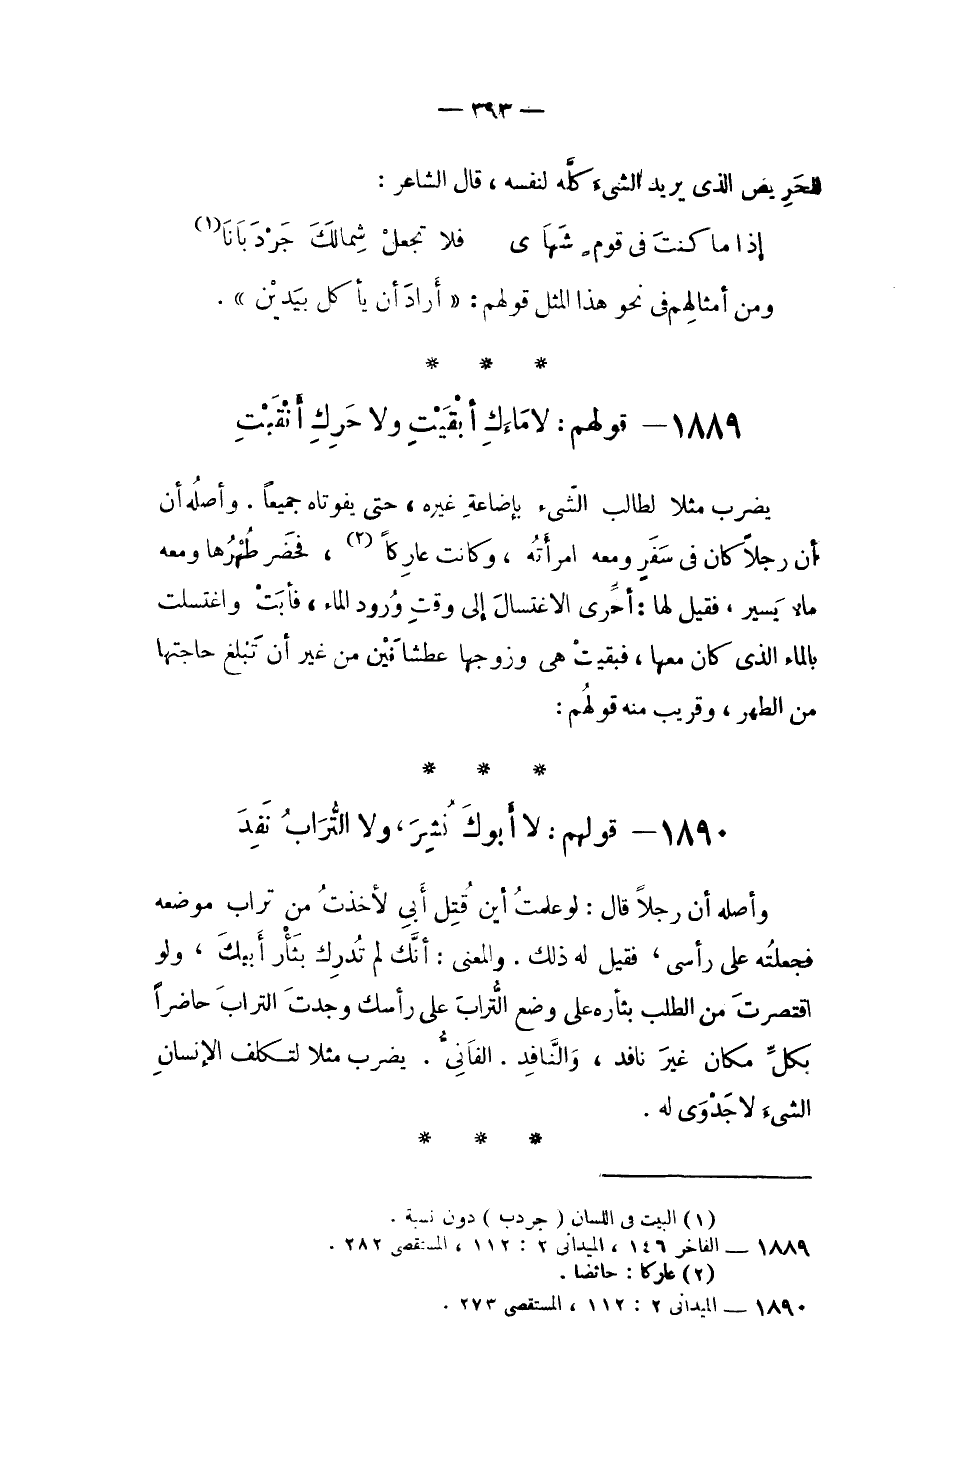 — ٣٩٣ —
للحَرِيص الذى يريد الشىء كلَّه لنفسه ، قال الشاعر :
إذا ما كنتَ فى قومٍ شَهَاوَى فلا تجعلْ شِمالَكَ جَرْدَبَانَا(١)
ومن أمثالِهم فى نحو هذا المثل قولهم : « أرادَ أن يأكل بيَدَيْنِ » .
* * *
١٨٨٩ – قولهم : لا مَاءَكِ أبْقَيْتِ ولا حَرِكِ أنْقَيْتِ
يضرب مثلا لطالب الشَّىء بإضاعةِ غيره ، حتى يفوتاه جميعاً . وأصلُه أن
أن رجلاً كان فى سَفَرٍ ومعه امرأتُه ، وكانت عارِكاً (٢) ، فحَضَر طُهْرُها ومعه
ماء يَسير ، فقيل لها : أخِّرى الاغتسالَ إلى وقتِ وُرود الماء ، فأبَتْ واغتسلت
بالماء الذى كان معها ، فبقيتْ هى وزوجها عطشانَيْن من غير أن تَبلغ حاجتها
من الطهر ، وقريب منه قولُهم :
* * *
١٨٩٠ – قولهم : لا أبوكَ نُشِرَ ، ولا التُّرَابُ نَفِدَ
وأصله أن رجلاً قال : لو علمتُ أين قُتِل أَبِى لأخذتُ من تراب موضعه
فجعلتُه على رأسى ، فقيل له ذلك . والمعنى : أنَّك لم تُدرِك بثَأْر أَبيكَ ، ولو
اقتصرتَ من الطلب بثأره على وضع التُّرابَ على رأسك وجدتَ الترابَ حاضراً
بكلِّ مكان غيرَ نافد ، وَالنَّافِد . الفَانِىُّ . يضرب مثلا لتكلف الإنسانِ
الشىءَ لا جَدْوَى له .
* * *
(١) البيت فى اللسان ( جردب ) دون نسبة .
١٨٨٩ — الفاخر ١٤٦ ، الميدانى ٢ : ١١٢ ، المستقصى ٢٨٢ .
(٢) عاركا : حائضا .
١٨٩٠ — الميدانى ٢ : ١١٢ ، المستقصى ٢٧٣ .